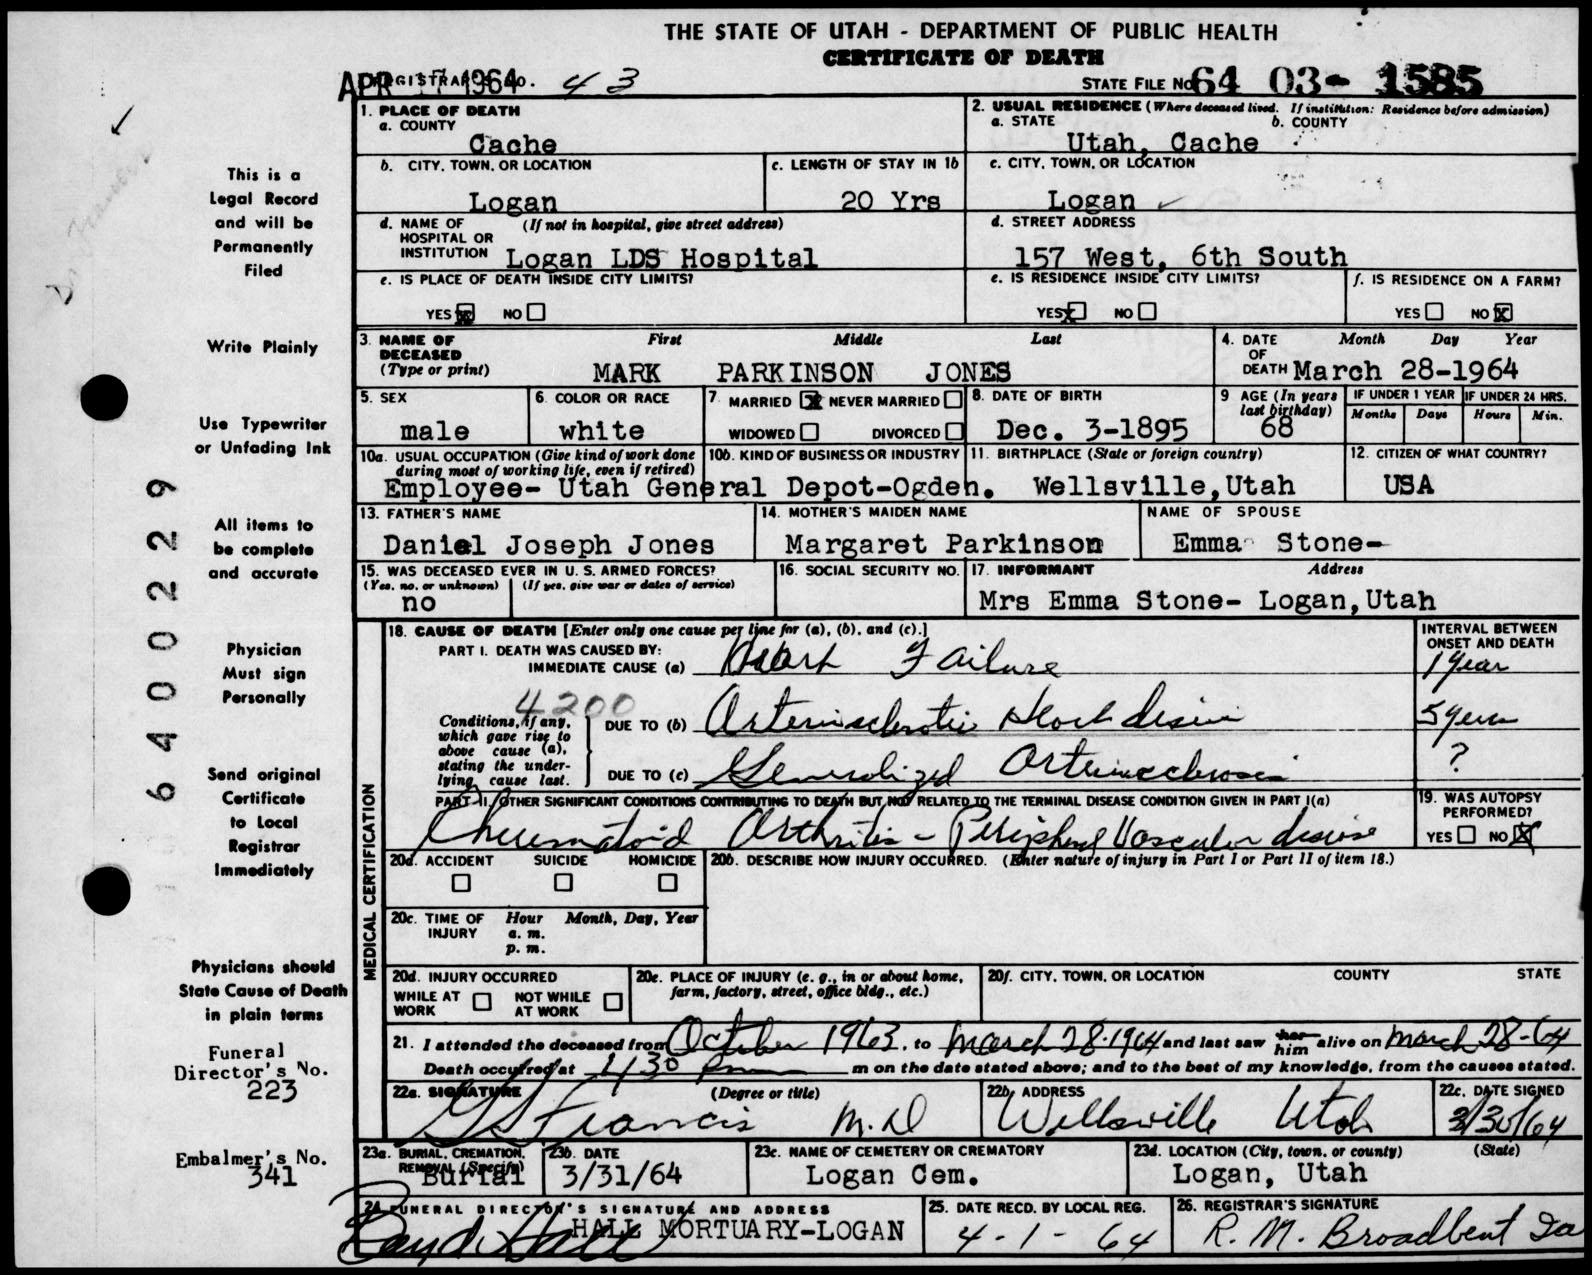 THE STATE OF UTAH - DEPARTMENT OF PUBLIC HEALTH
CERTIFICATE OF DEATH
APR 17 1964 REGISTRAR'S NO. 43
STATE FILE NO. 64 03- 1585
1. PLACE OF DEATH
a. COUNTY
Cache
2. USUAL RESIDENCE (Where deceased lived. If institution: Residence before admission)
a. STATE b. COUNTY
Utah, Cache
b. CITY, TOWN, OR LOCATION
Logan
c. LENGTH OF STAY IN 1b
20 Yrs
c. CITY, TOWN, OR LOCATION
Logan
d. NAME OF HOSPITAL OR INSTITUTION (If not in hospital, give street address)
Logan LDS Hospital
d. STREET ADDRESS
157 West, 6th South
e. IS PLACE OF DEATH INSIDE CITY LIMITS?
YES x NO
e. IS RESIDENCE INSIDE CITY LIMITS?
YES x NO
f. IS RESIDENCE ON A FARM?
YES NO x
3. NAME OF DECEASED (Type or print) First Middle Last
MARK PARKINSON JONES
4. DATE OF DEATH Month Day Year
March 28-1964
5. SEX
male
6. COLOR OR RACE
white
7. MARRIED x NEVER MARRIED
WIDOWED DIVORCED
8. DATE OF BIRTH
Dec. 3-1895
9 AGE (In years last birthday)
68
IF UNDER 1 YEAR IF UNDER 24 HRS.
Months Days Hours Min.
10a. USUAL OCCUPATION (Give kind of work done during most of working life, even if retired)
10b. KIND OF BUSINESS OR INDUSTRY
Employee- Utah General Depot-Ogden.
11. BIRTHPLACE (State or foreign country)
Wellsville, Utah
12. CITIZEN OF WHAT COUNTRY?
USA
13. FATHER'S NAME
Daniel Joseph Jones
14. MOTHER'S MAIDEN NAME
Margaret Parkinson
NAME OF SPOUSE
Emma Stone-
15. WAS DECEASED EVER IN U. S. ARMED FORCES?
(Yes, no, or unknown) (If yes, give war or dates of service)
no
16. SOCIAL SECURITY NO.
17. INFORMANT Address
Mrs Emma Stone- Logan, Utah
MEDICAL CERTIFICATION
18. CAUSE OF DEATH [Enter only one cause per line for (a), (b), and (c).]
INTERVAL BETWEEN ONSET AND DEATH
PART I. DEATH WAS CAUSED BY:
IMMEDIATE CAUSE (a) Heart Failure 1 Year
4200
Conditions, if any, which gave rise to above cause (a), stating the underlying cause last.
DUE TO (b) Arteriosclerotic Heart disease 5 years
DUE TO (c) Generalized Arteriosclerosis ?
PART II. OTHER SIGNIFICANT CONDITIONS CONTRIBUTING TO DEATH BUT NOT RELATED TO THE TERMINAL DISEASE CONDITION GIVEN IN PART I(a)
Rheumatoid Arthritis - Peripheral Vascular disease
19. WAS AUTOPSY PERFORMED?
YES NO x
20a. ACCIDENT SUICIDE HOMICIDE
20b. DESCRIBE HOW INJURY OCCURRED. (Enter nature of injury in Part I or Part II of item 18.)
20c. TIME OF INJURY Hour Month, Day, Year
a. m.
p. m.
20d. INJURY OCCURRED
WHILE AT WORK NOT WHILE AT WORK
20e. PLACE OF INJURY (e. g., in or about home, farm, factory, street, office bldg., etc.)
20f. CITY, TOWN, OR LOCATION COUNTY STATE
21. I attended the deceased from October 1963, to March 28-1964 and last saw her him alive on March 28-64
Death occurred at 1/30 pm m on the date stated above; and to the best of my knowledge, from the causes stated.
22a. SIGNATURE (Degree or title)
G S Francis M. D
22b. ADDRESS
Wellsville Utah
22c. DATE SIGNED
3/30/64
23a. BURIAL, CREMATION, REMOVAL (Specify)
Burial
23b. DATE
3/31/64
23c. NAME OF CEMETERY OR CREMATORY
Logan Cem.
23d. LOCATION (City, town, or county) (State)
Logan, Utah
24. FUNERAL DIRECTOR'S SIGNATURE AND ADDRESS
HALL MORTUARY-LOGAN
25. DATE RECD. BY LOCAL REG.
4-1-64
26. REGISTRAR'S SIGNATURE
R. M. Broadbent
This is a
Legal Record
and will be
Permanently
Filed
Write Plainly
Use Typewriter
or Unfading Ink
All items to
be complete
and accurate
Physician
Must sign
Personally
Send original
Certificate
to Local
Registrar
Immediately
Physicians should
State Cause of Death
in plain terms
Funeral
Director's No.
223
Embalmer's No.
341
6400229